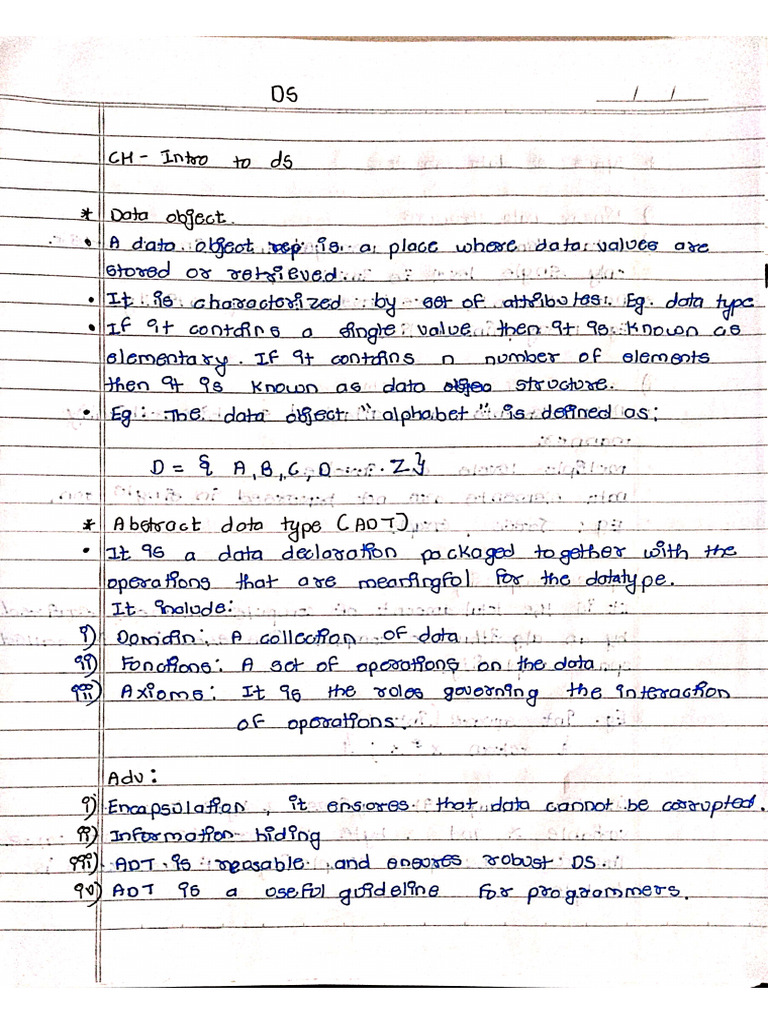 DS
/ /
CH - Intro to ds
* Data object.
• A data object rep is a place where data values are
stored or retrieved.
• It is characterized by set of attributes. Eg. data type
• If it contains a single value then it is known as
elementary. If it contains n number of elements
then it is known as data objec structure.
• Eg: The data object "alphabet" is defined as:
D = { A, B, C, D ---- Z}
* Abstract data type (ADT)
• It is a data declaration packaged together with the
operations that are meaningful for the datatype.
It include:
i) Domain: A collection of data
ii) Functions: A set of operations on the data
iii) Axioms: It is the rules governing the interaction
of operations.
Adv:
i) Encapsulation, it ensures that data cannot be corrupted.
ii) Information hiding
iii) ADT is reasable and ensures robust DS.
iv) ADT is a useful guideline for programmers.